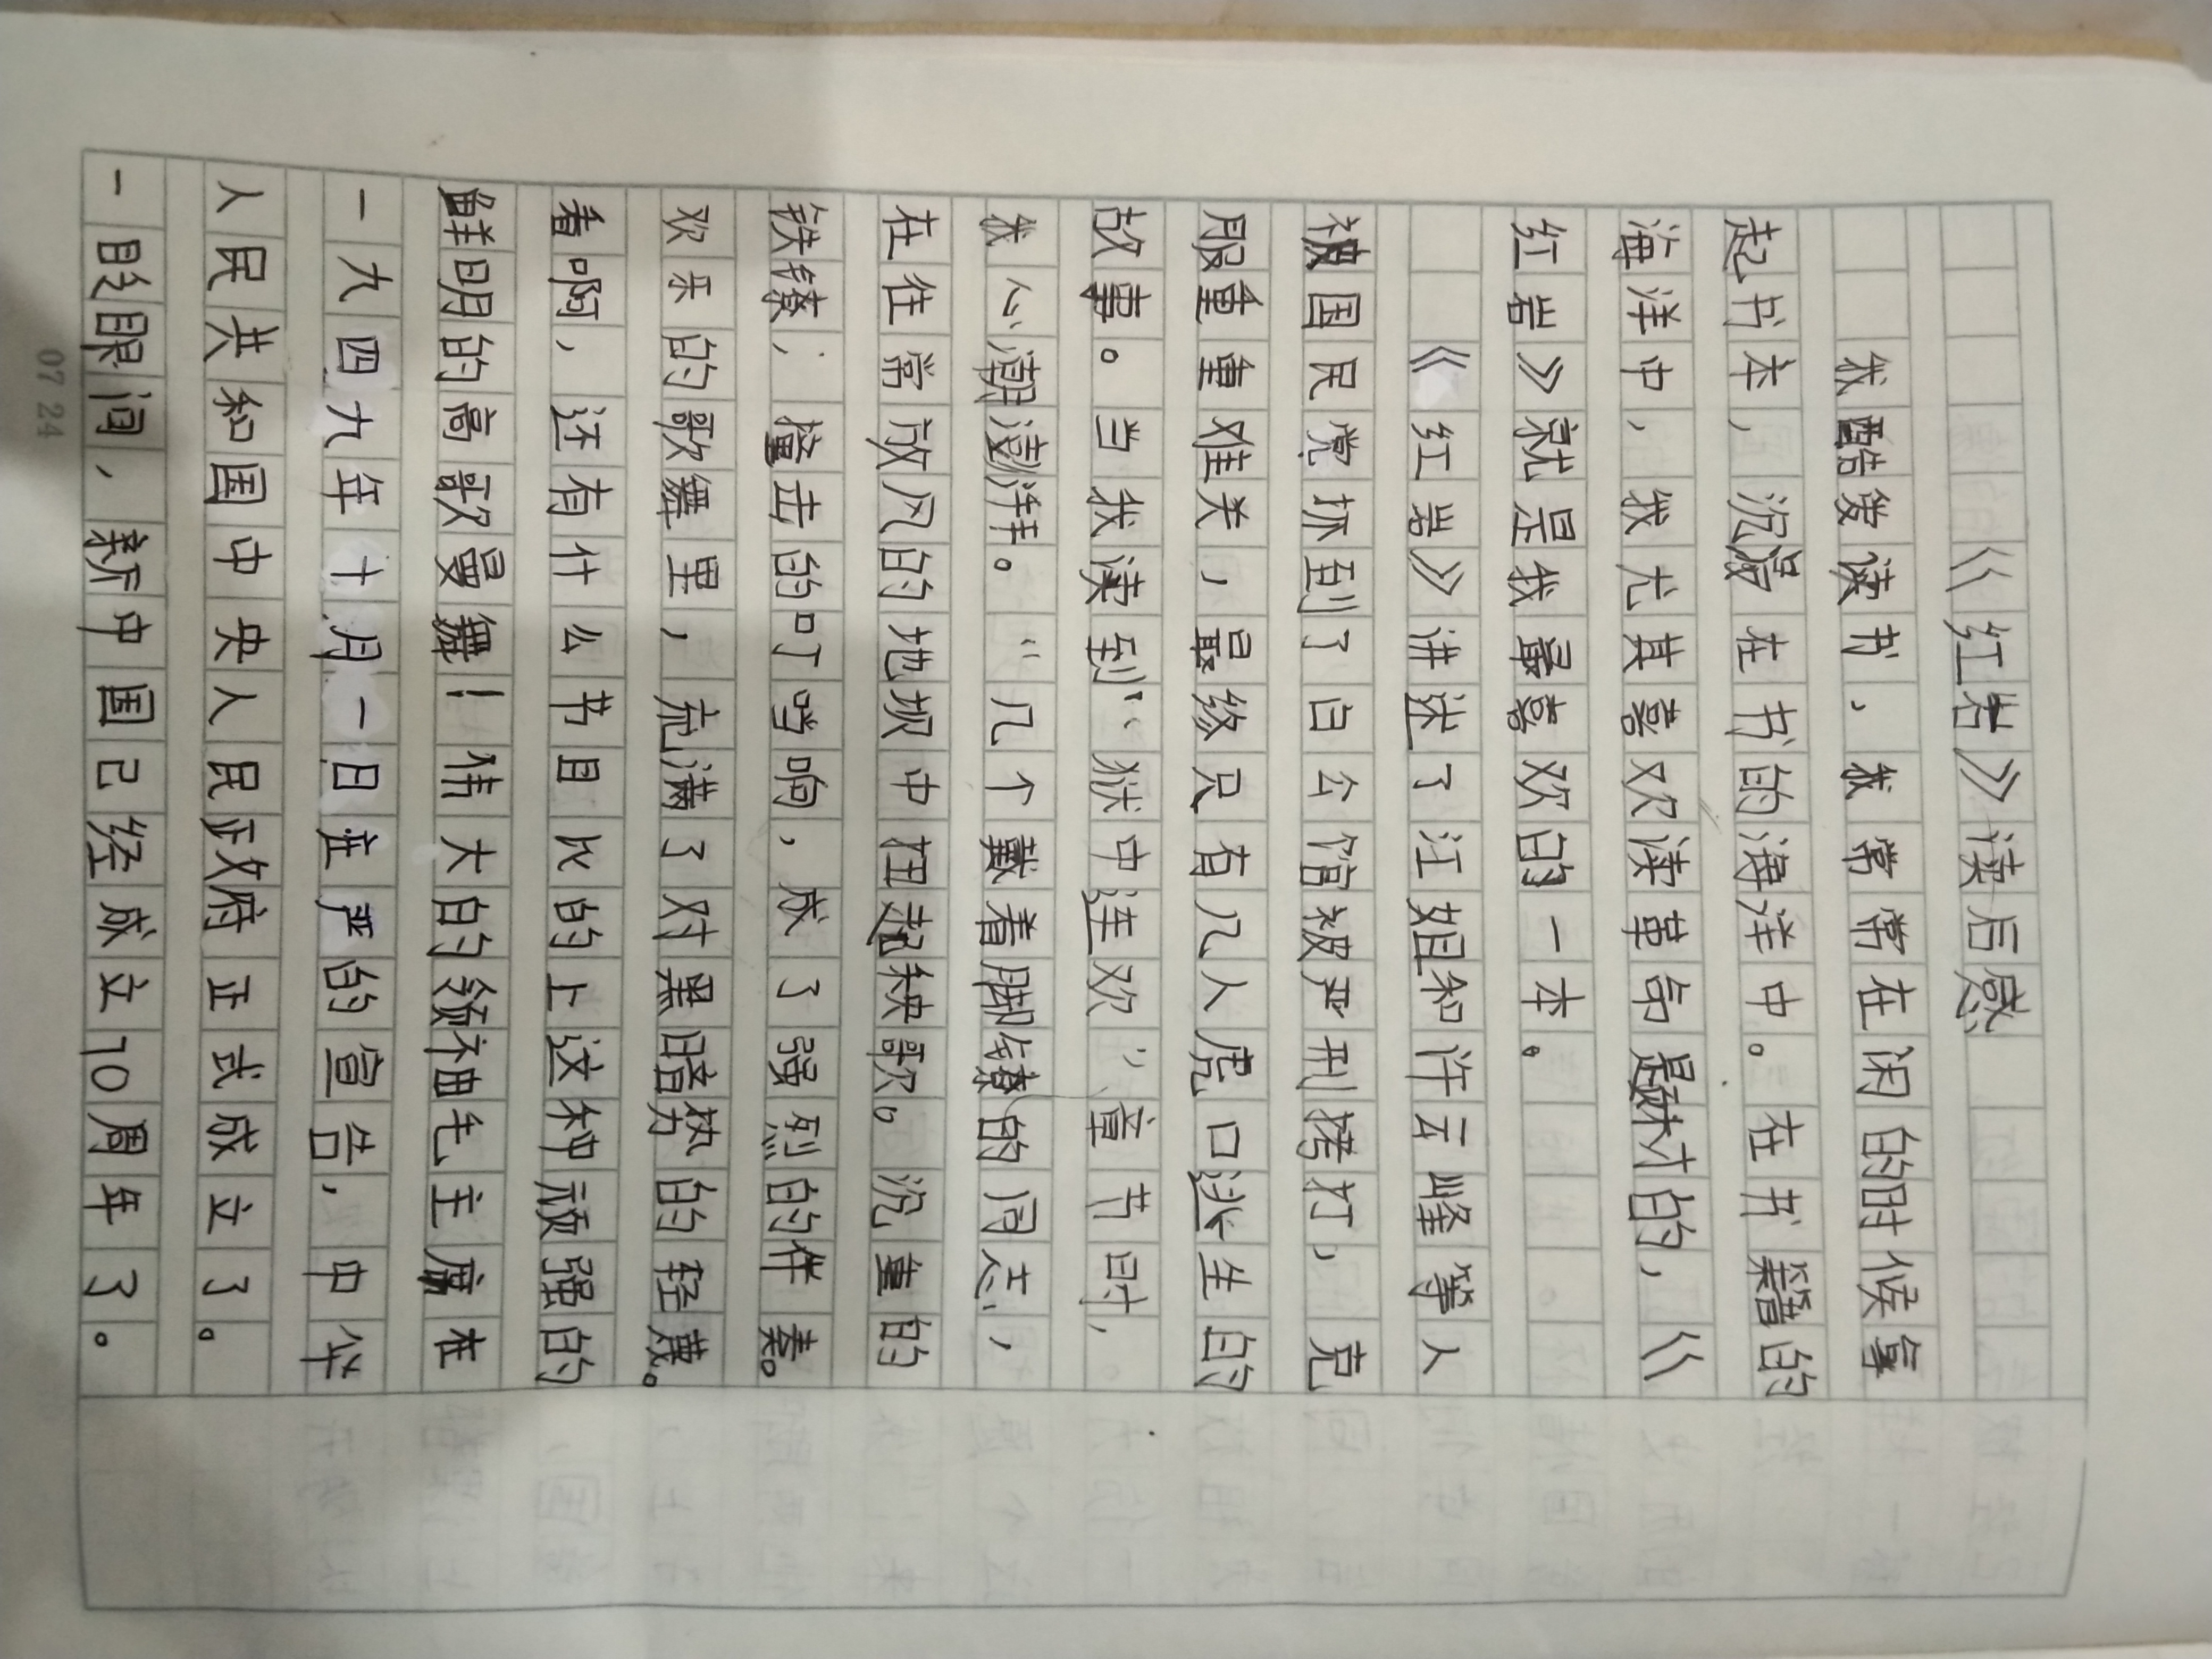 《红岩》读后感
我酷爱读书，我常常在闲的时候拿
起书本，沉浸在书的海洋中。在书籍的
海洋中，我尤其喜欢读革命题材的，《
红岩》就是我最喜欢的一本。
《红岩》讲述了江姐和许云峰等人
被国民党抓到了白公馆被严刑拷打，克
服重重难关，最终只有几人虎口逃生的
故事。当我读到“狱中连欢”章节时，
我心潮澎湃。“几个戴着脚镣的同志，
在往常放风的地坝中扭起秧歌。沉重的
铁镣，撞击的叮当响，成了强烈的伴奏。
欢乐的歌舞里，充满了对黑暗势的轻蔑。
看啊，还有什么节目比的上这种顽强的
鲜明的高歌曼舞！伟大的领袖毛主席在
一九四九年十月一日庄严的宣告，中华
人民共和国中央人民政府正式成立了。
一眨眼间，新中国已经成立70周年了。
07 24